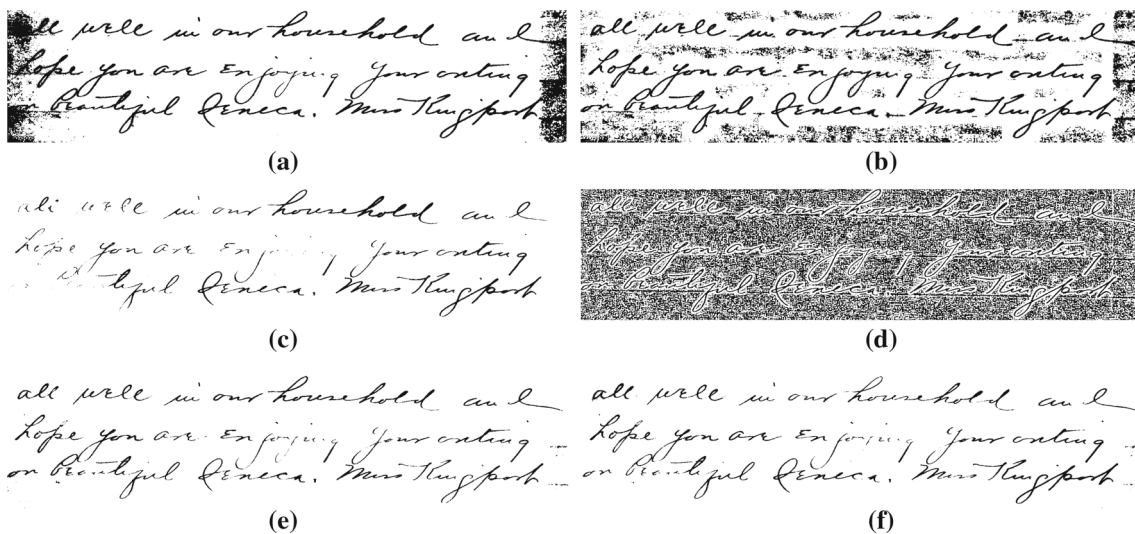 all well in our household and
hope you are Enjoying Your outing
on beautiful Seneca. Miss Kingport
(a)
all well in our household and
hope you are Enjoying Your outing
on beautiful Seneca. Miss Kingport
(b)
all well in our household and
hope you are Enjoying Your outing
tiful Seneca. Miss Kingport
(c)
all well in our household and
hope you are Enjoying Your outing
on beautiful Seneca. Miss Kingport
(d)
all well in our household and
hope you are Enjoying Your outing
on beautiful Seneca. Miss Kingport
(e)
all well in our household and
hope you are Enjoying Your outing
on beautiful Seneca. Miss Kingport
(f)